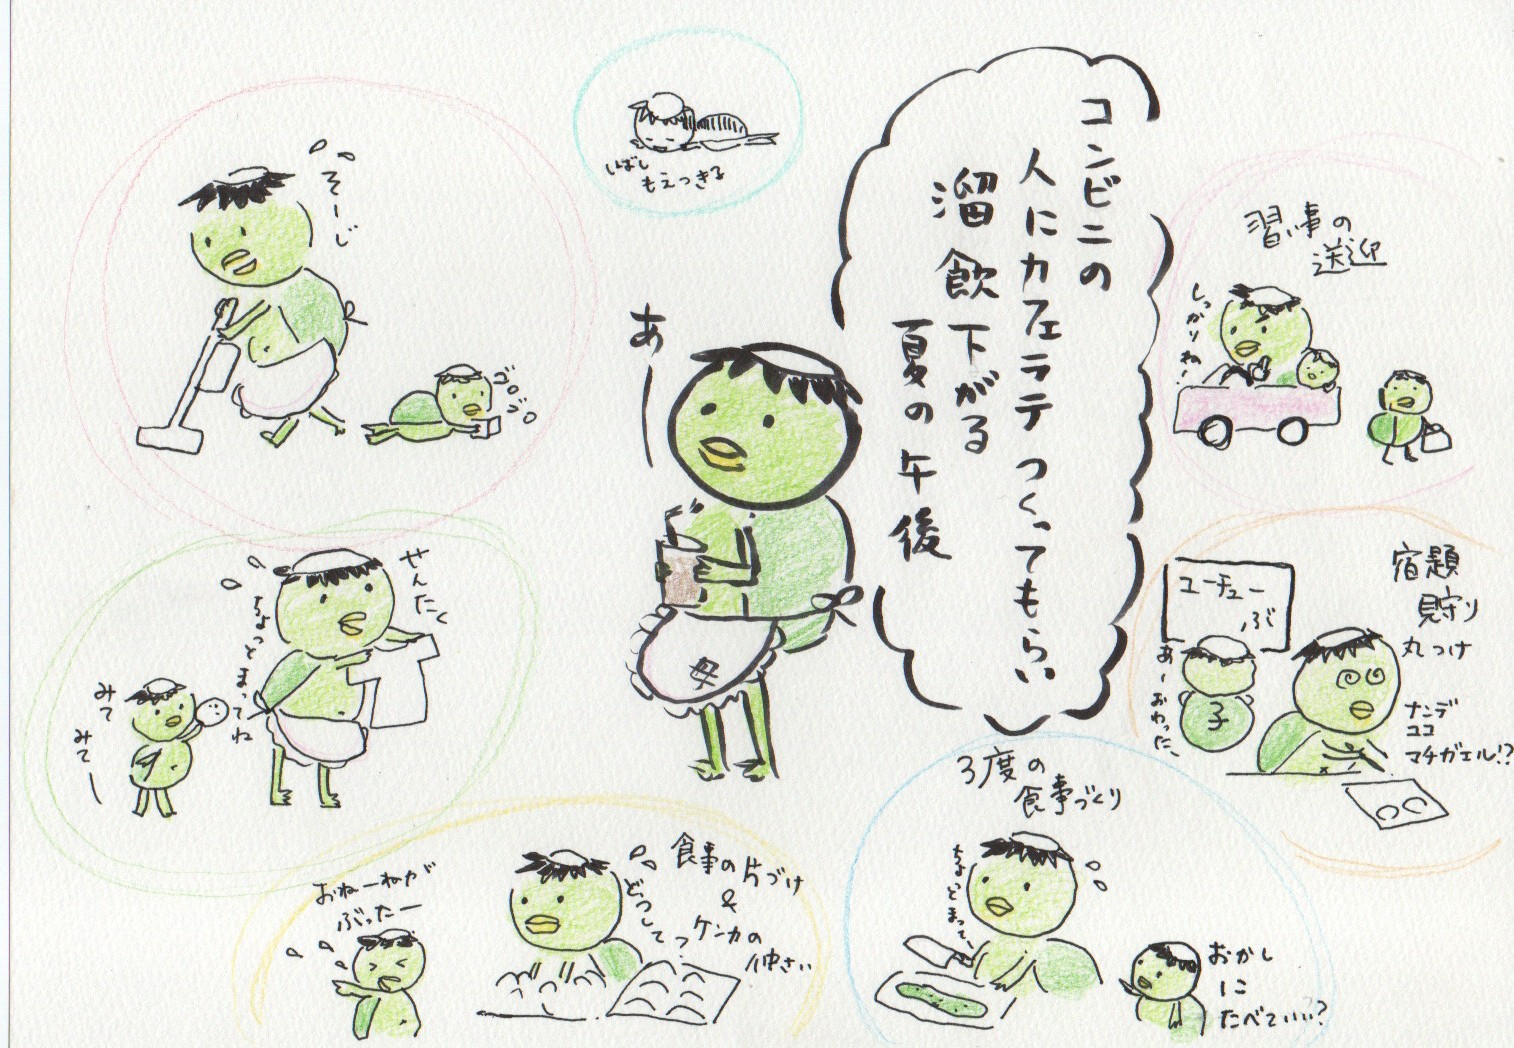 コンビニの
人にカフェラテつくってもらい
溜飲下がる
夏の午後
あー
母
しばし
もえつきる
そーじ
ゴロ
ゴロ
せんたく
ちょっとまってね
みて
みてー
食事の片づけ
&
ケンカの
仲さい
どうして?
おねーねが
ぶったー
3度の
食事づくり
ちょっとまってー
おかし
に
たべていい!?
宿題
見守り
丸つけ
ユーチュー
ぶ
あーおわった、
子
ナンデ
ココ
マチガエル!?
習い事の
送迎
しっかりねー